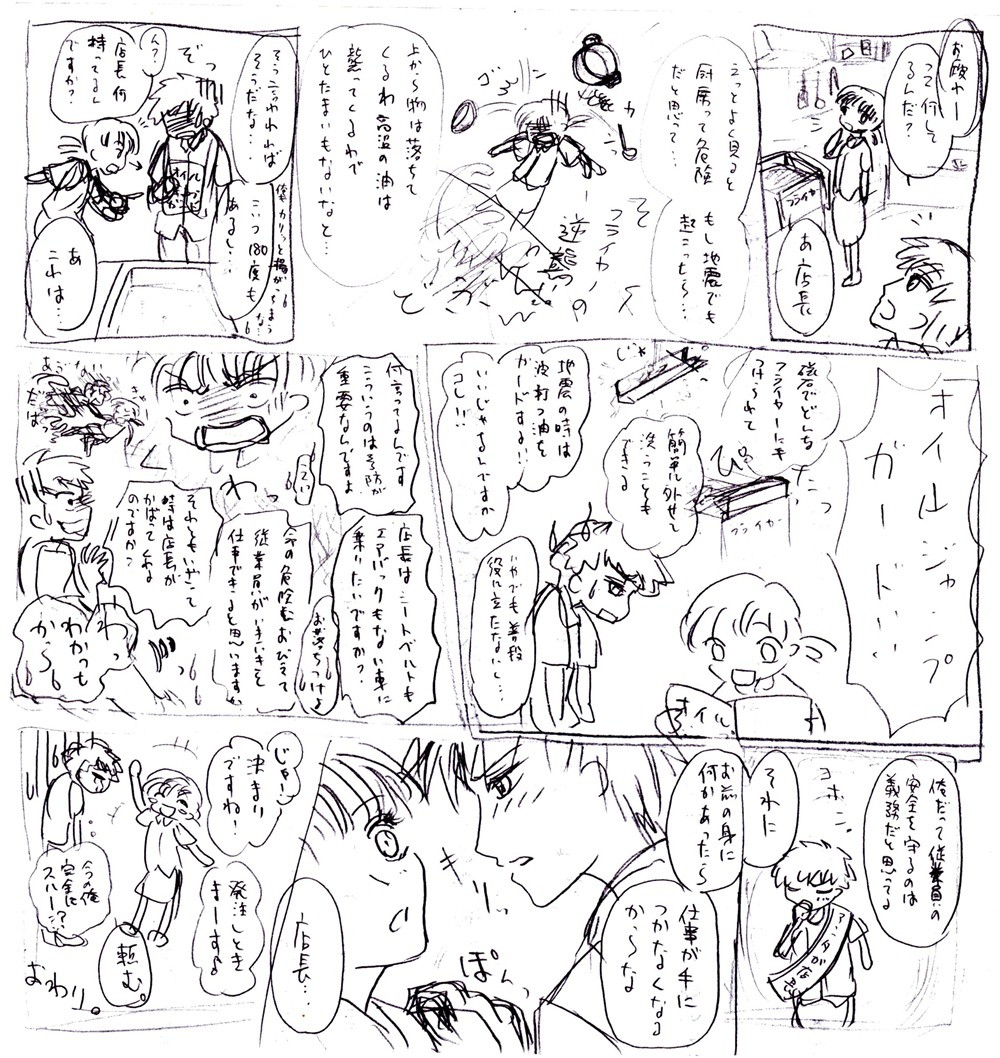 お疲れー
って何して
るんだ?
フライヤー
あ店長
えっとよく見ると
厨房って危険
だと思って…
もし地震でも
起こったら…
フライヤーの
逆襲
上から物は落ちて
くるわ高温の油は
襲ってくるわで
ひとたまりもないなと…
ぞっ
そう言われれば
そうだな…
こいつ180度も
あるし…
ん?
店長何
持ってるん
ですか?
あ
これは…
オイルジャンプ
ガード…
磁石でどんな
フライヤーにも
つけられて
ぴっ
フライヤー
簡単に外せて
洗うことも
できる
じゃーっ
地震の時は
波打つ油を
ガードする!!
いいじゃないですか
コレ!!
オイル
いやでも普段
役に立たないし…
何言ってるんです
こういうのは予防が
重要なんですよ
わっ
店長はシートベルトも
エアバックもない車に
乗りたいですか?
命の危険におびえて
従業員がいきいきと
仕事できると思いますか
お落ちつけよ
それともいざって
時は店長が
かばってくれる
のですか?
わっ
わかった
から
俺だって従業員の
安全を守るのは
義務だと思ってる
コホン
それに
お前の身に
何かあったら
仕事が手に
つかなくなる
からな
ぽんっ
店長…
じゃー
決まり
ですね!
発注しとき
まーす♪
頼む。
今の俺
完全に
スルー!?
おわり。